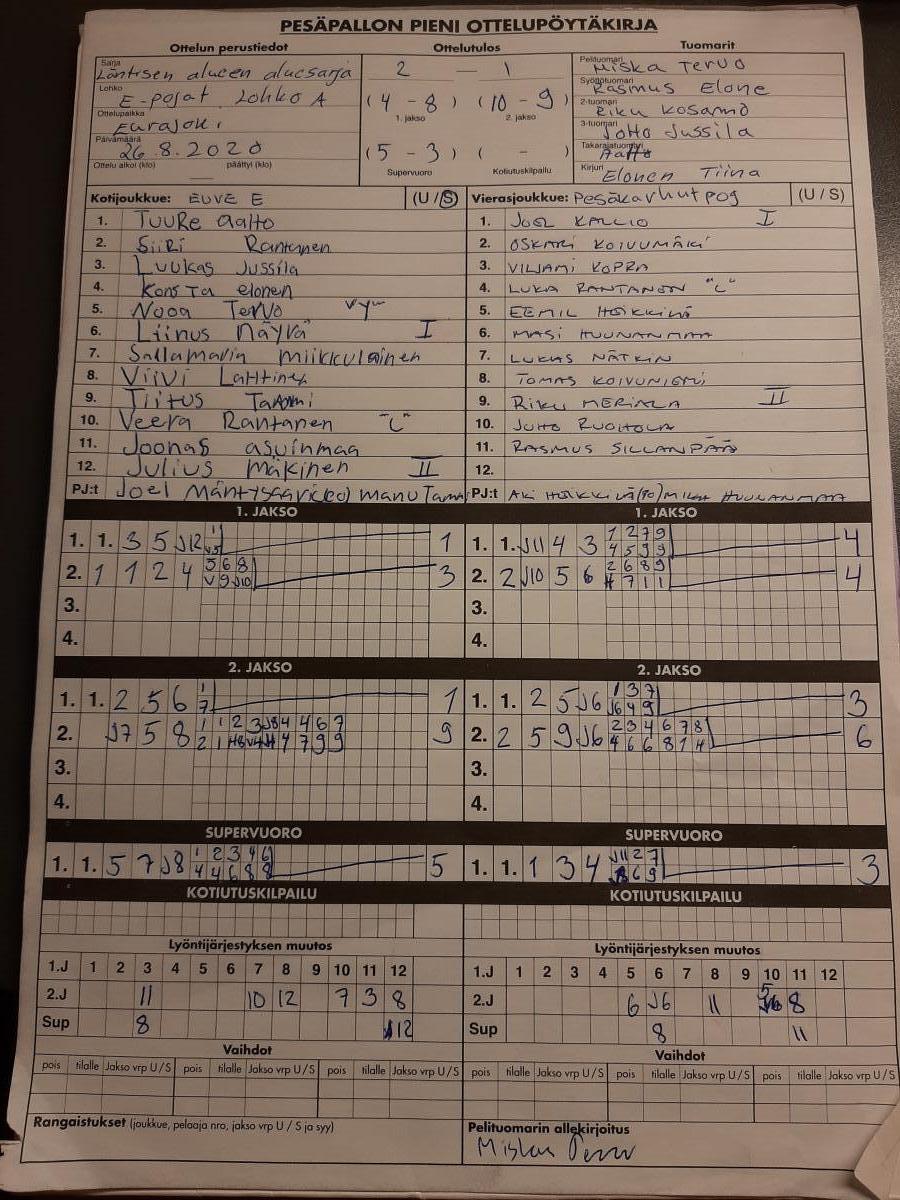 PESÄPALLON PIENI OTTELUPÖYTÄKIRJA
Ottelun perustiedot Ottelutulos Tuomarit
Sarja Läntisen alueen aluesarja
Lohko E-pojat Lohko A
Ottelupaikka Eurajoki
Päivämäärä 26.8.2020
Ottelu alkoi (klo) päättyi (klo)
2 — 1
(4 - 8) (10 - 9)
1. jakso 2. jakso
(5 - 3) ( - )
Supervuoro Kotiutuskilpailu
Pelituomari Miska Tervo
Syöttötuomari Rasmus Elone
2-tuomari Riku Kosamo
3-tuomari Joho Jussila
Takarajatuomari Aatto
Kirjuri Elonen Tiina
Kotijoukkue: EUVE E (U/S)
1. Tuure Aalto
2. Siiri Rantanen
3. Luukas Jussila
4. Konsta elonen
5. Nooa Tervo
6. Liinus Näyrä I
7. Sallamaria Miikkulainen
8. Viivi Lahtinen
9. Tiitus Tammi
10. Veera Rantanen "C"
11. Joonas asuinmaa
12. Julius Mäkinen II
PJ:t Joel Mäntysaari manu
Vierasjoukkue: Pesäkarhut poj (U/S)
1. JOEL KALLIO I
2. OSKARI KOIVUMÄKI
3. VILJAMI KOPRA
4. LUKA RANTANEN "C"
5. EEMIL HOIKKILÄ
6. MASI HUUNANMAA
7. LUKAS NÄTKIN
8. TOMAS KOIVUNIEMI
9. RIKU MERIALA II
10. JUHO RUOHOLA
11. RASMUS SILLANPÄÄ
12.
PJ:t AKI HOIKKILÄ (PJ) MIKA HUUNANMAA
1. JAKSO 1. JAKSO
1. 1. 3 5 J12 1
2. 1 1 2 4 5 6 8 3
V 9 J10
3.
4.
1. 1. J11 4 3 1 2 7 9 4
4 5 9 9
2. 2 J10 5 6 2 6 8 9 4
4 7 1 1
3.
4.
2. JAKSO 2. JAKSO
1. 1. 2 5 6 1 1
7
2. J7 5 8 1 1 2 3 J8 4 4 6 7 9
3.
4.
1. 1. 2 5 J6 1 3 7 3
J6 4 9
2. 2 5 9 J6 2 3 4 6 7 8 6
4 6 6 8 1 4
3.
4.
SUPERVUORO SUPERVUORO
1. 1. 5 7 J8 1 2 3 4 6 5
4 4 6 8 8
1. 1. 1 3 4 J11 2 7 3
6 9
KOTIUTUSKILPAILU KOTIUTUSKILPAILU
Lyöntijärjestyksen muutos Lyöntijärjestyksen muutos
1.J 1 2 3 4 5 6 7 8 9 10 11 12
2.J 11 10 12 7 3 8
Sup 8 12
1.J 1 2 3 4 5 6 7 8 9 10 11 12
2.J 6 J6 11 5 8
Sup 8 11
Vaihdot Vaihdot
pois tilalle Jakso vrp U/S pois tilalle Jakso vrp U/S pois tilalle Jakso vrp U/S
pois tilalle Jakso vrp U/S pois tilalle Jakso vrp U/S pois tilalle Jakso vrp U/S
Rangaistukset (joukkue, pelaaja nro, jakso vrp U / S ja syy)
Pelituomarin allekirjoitus